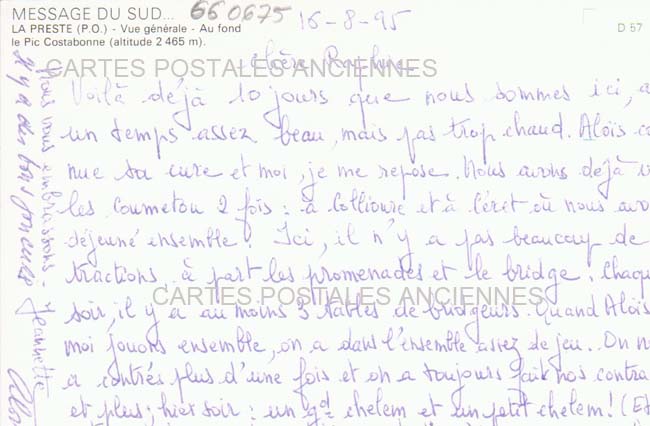 MESSAGE DU SUD...
660675
16-8-95
LA PRESTE (P.O.) - Vue générale - Au fond
le Pic Costabonne (altitude 2 465 m).
D 57
Chère
CARTES POSTALES ANCIENNES
Voilà déjà 10 jours que nous sommes ici, a
un temps assez beau, mais pas trop chaud. Aloïs co
nue sa cure et moi, je me repose. Nous avons déjà v
les Coumetou 2 fois : à Collioure et à Céret où nous avo
déjeuné ensemble. Ici, il n'y a pas beaucoup de
tractions à part les promenades et le bridge. Chaqu
CARTES POSTALES ANCIENNES
soir, il y a au moins 3 tables de bridgeurs. Quand Aloïs
moi jouons ensemble, on a dans l'ensemble assez de jeu. On n
a contrés plus d'une fois et on a toujours fait nos contra
et plus ; hier soir : un gd chelem et un petit chelem ! (Et
Nous vous embrassons :
Jeannette
Il y a des bons joueurs